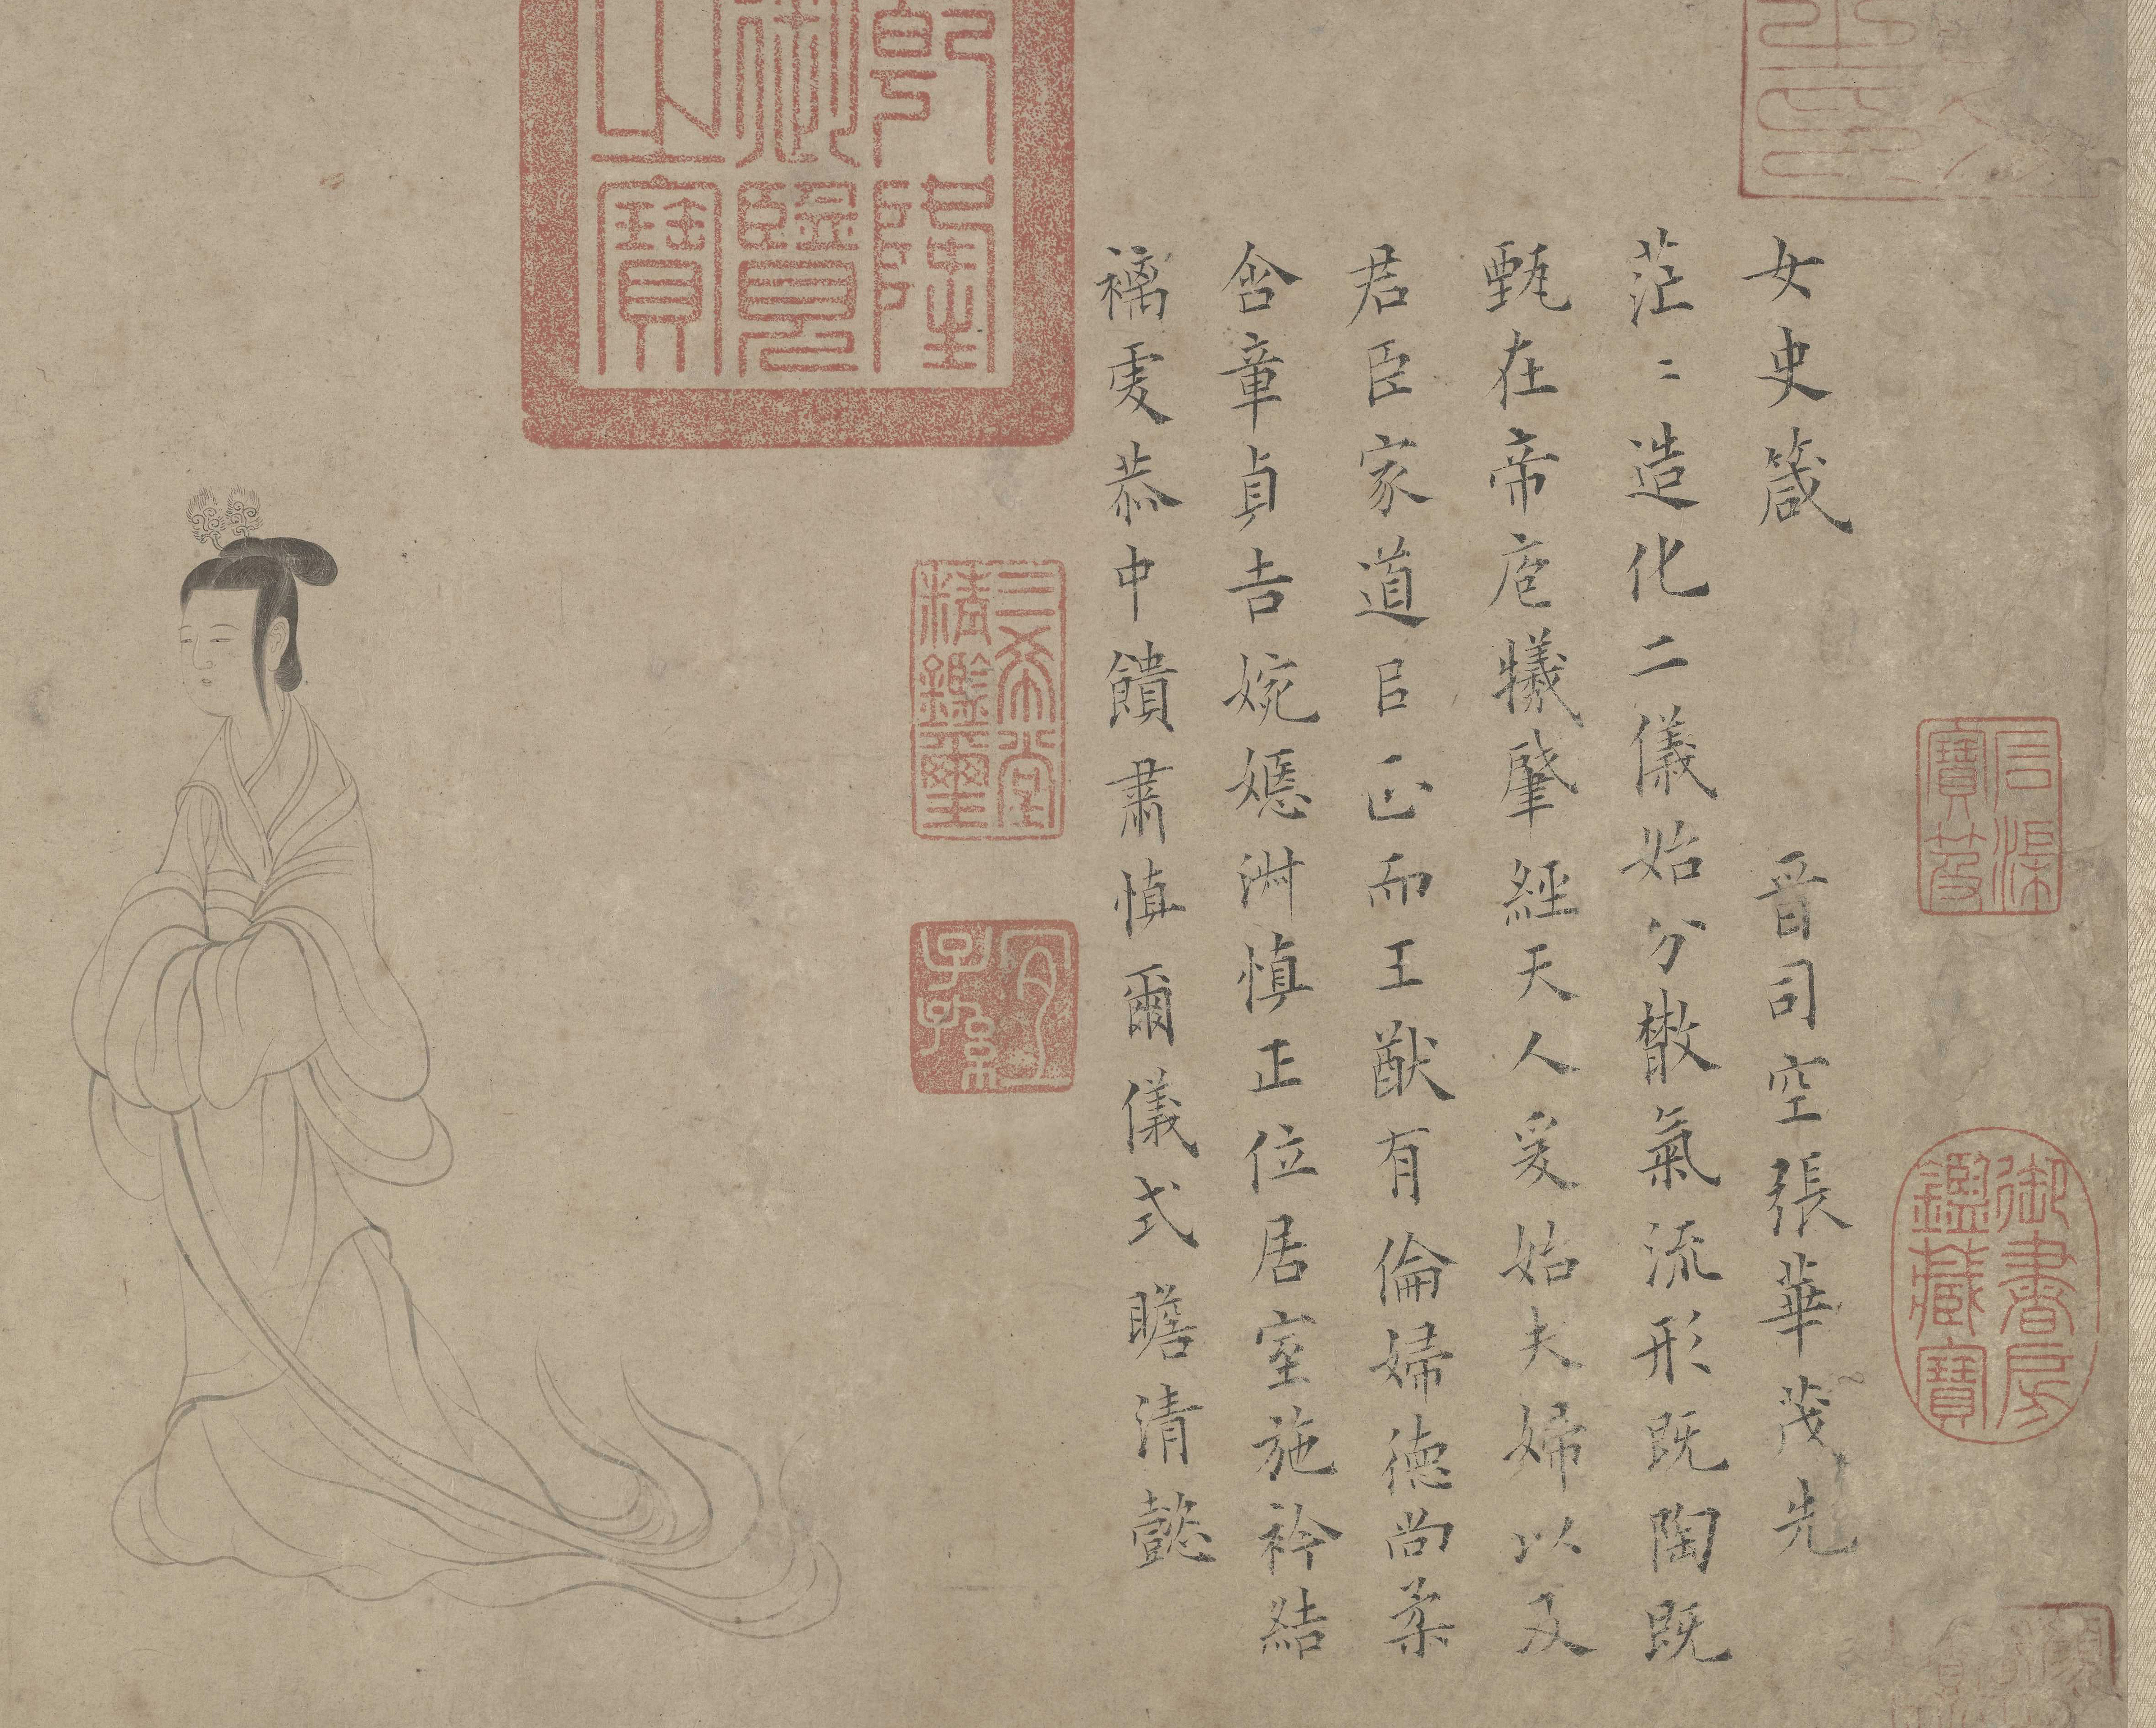 女史箴 晉司空張華茂先
茫〻造化二儀始分散氣流形既陶既
甄在帝庖犧肇經天人爰始夫婦以及
君臣家道㠯正而王猷有倫婦德尚柔
含章貞吉婉嫕淑慎正位居室施衿結
褵虔恭中饋肅慎爾儀式瞻清懿
乾隆御覽之寶
三希堂精鑑璽
宜子孫
石渠寶笈
御書房鑑藏寶